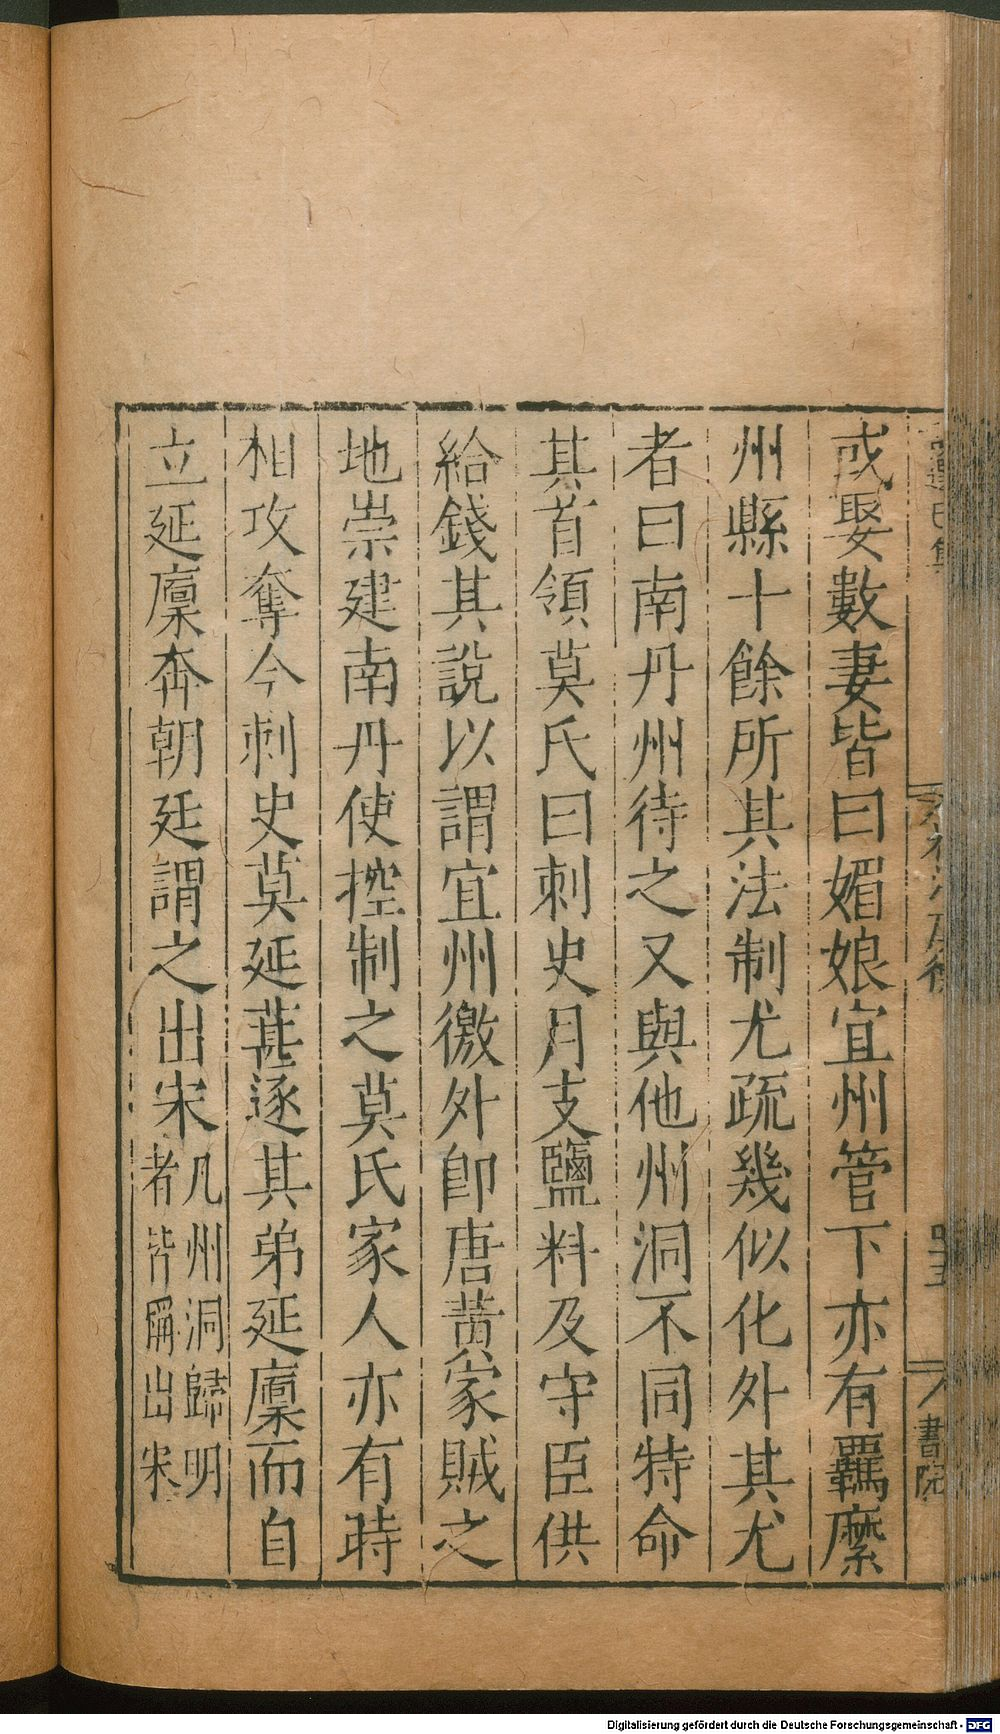 或娶數妻皆曰媚娘宜州管下亦有羈縻
州縣十餘所其法制尤疏幾似化外其尤
者曰南丹州待之又與他州洞不同特命
其首領莫氏曰刺史月支鹽料及守臣供
給錢其說以謂宜州徼外卽唐黃家賊之
地崇建南丹使控制之莫氏家人亦有時
相攻奪今刺史莫延葚逐其弟延廩而自
立延廩奔朝廷謂之出宋
凡州洞歸明
者皆稱出宋
書院
Digitalisierung gefördert durch die Deutsche Forschungsgemeinschaft - DFG